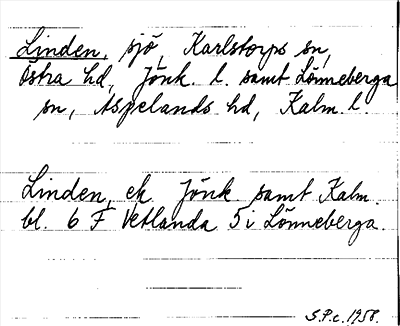 Linden, sjö, Karlstorps sn,
Östra hd, Jönk. l. samt Lönneberga
sn, Aspelands hd, Kalm. l.
Linden, ek Jönk samt Kalm.
bl. 6 F Vetlanda 5 i Lönneberga.
S.P.c. 1958.